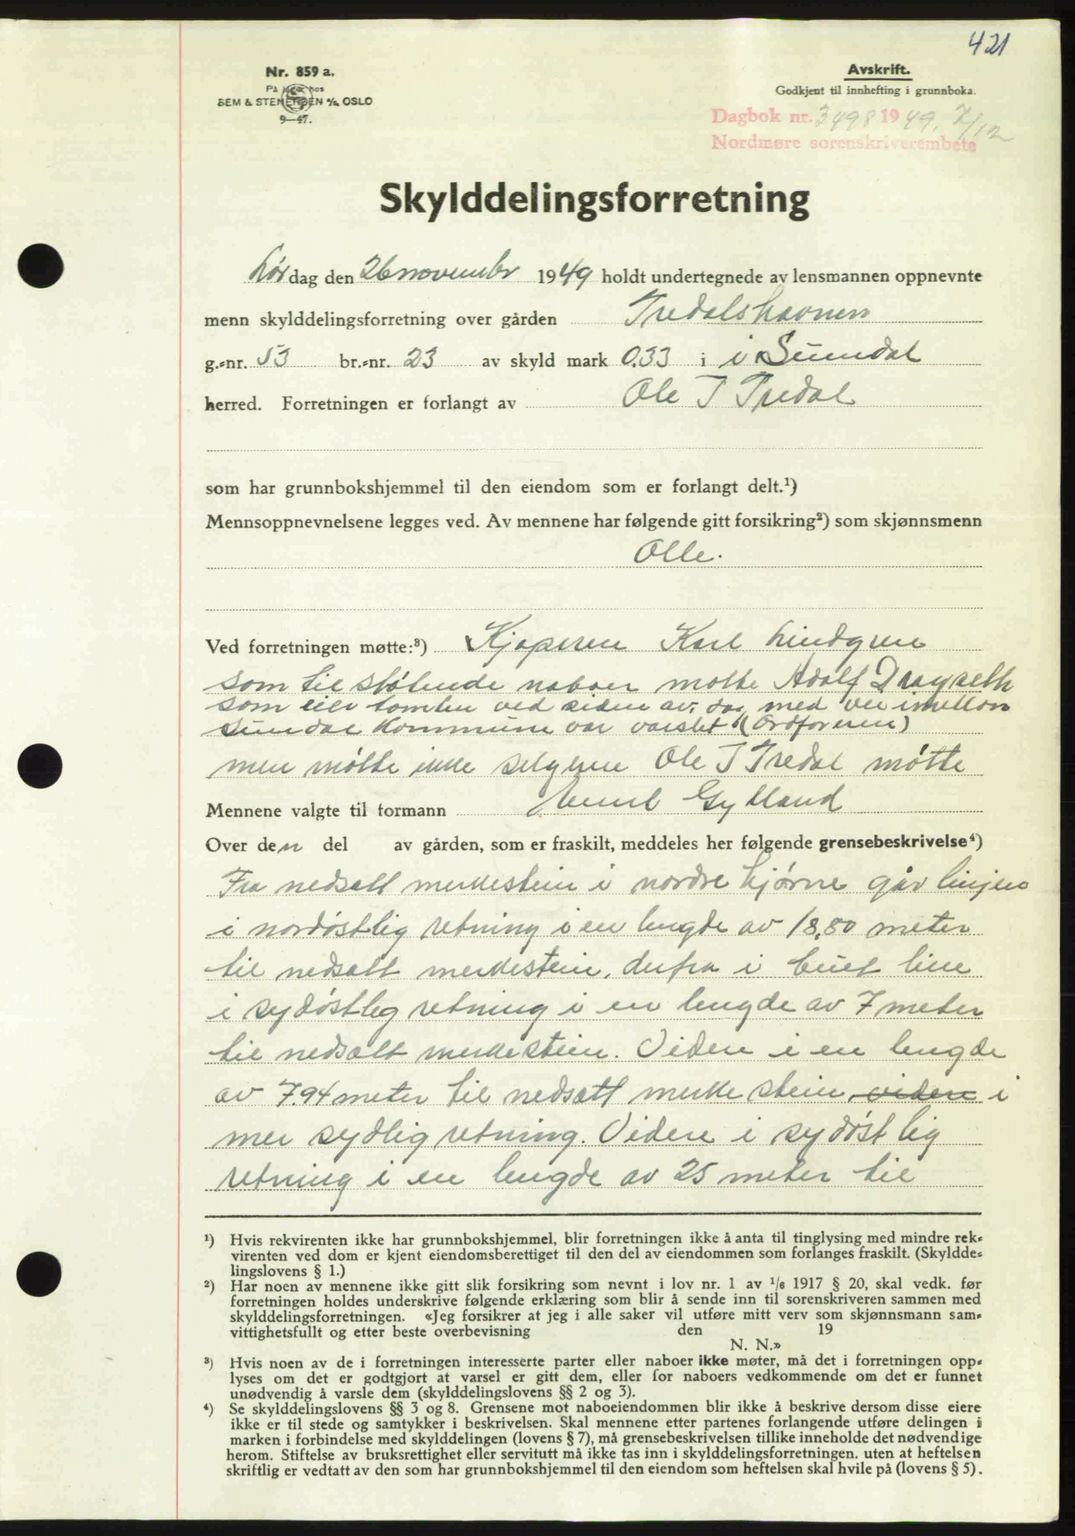 421
Nr. 859 a.
På lager hos
SEM & STENERSEN A/S, OSLO
9—47.
Avskrift.
Godkjent til innhefting i grunnboka.
Dagbok nr. 3498 1949. 7/12
Nordmøre sorenskriverembete
Skylddelingsforretning
Lørdag den 26 november 1949 holdt undertegnede av lensmannen oppnevnte
menn skylddelingsforretning over gården Tredalshavnen
g.-nr. 53 br.-nr. 23 av skyld mark 0.33 i i Sunndal
herred. Forretningen er forlangt av Ole T Tredal
som har grunnbokshjemmel til den eiendom som er forlangt delt.¹)
Mennsoppnevnelsene legges ved. Av mennene har følgende gitt forsikring²) som skjønnsmenn
Alle.
Ved forretningen møtte:³) Kjøperen Karl Lindgren
som til støtende naboer møtte Adolf Drageseth
som eier tomten ved siden av, med vei imellom
Sunndal Kommune var varslet (Ordføreren)
men møtte ikke selgeren Ole T Tredal møtte
Mennene valgte til formann Gylland
Over den del av gården, som er fraskilt, meddeles her følgende grensebeskrivelse⁴)
Fra nedsatt merkestein i nordre hjørne går linjen
i nordøstlig retning i en lengde av 18,80 meter
til nedsatt merkestein, derfra i buet line
i sydøstleg retning i en lengde av 7 meter
til nedsatt merkestein. Videre i en lengde
av 7.94 meter til nedsatt merke stein, videre i
mer sydlig retning. Videre i sydøstlig
retning i en lengde av 25 meter til
¹) Hvis rekvirenten ikke har grunnbokshjemmel, blir forretningen ikke å anta til tinglysing med mindre rek-
virenten ved dom er kjent eiendomsberettiget til den del av eiendommen som forlanges fraskilt. (Skyldde-
lingslovens § 1.)
²) Har noen av mennene ikke gitt slik forsikring som nevnt i lov nr. 1 av ¹/₆ 1917 § 20, skal vedk. før
forretningen holdes underskrive følgende erklæring som blir å sende inn til sorenskriveren sammen med
skylddelingsforretningen. «Jeg forsikrer at jeg i alle saker vil utføre mitt verv som skjønnsmann sam-
vittighetsfullt og etter beste overbevisning den 19
N. N.»
³) Hvis noen av de i forretningen interesserte parter eller naboer ikke møter, må det i forretningen opp-
lyses om det er godtgjort at varsel er gitt dem, eller for naboers vedkommende om det er funnet
unødvendig å varsle dem (skylddelingslovens §§ 2 og 3).
⁴) Se skylddelingslovens §§ 3 og 8. Grensene mot naboeiendommen blir ikke å beskrive dersom disse eiere
ikke er til stede og samtykker i beskrivelsen. Skal mennene etter partenes forlangende utføre delingen i
marken i forbindelse med skylddelingen (lovens § 7), må grensebeskrivelsen tillike inneholde det nødvendige
herom. Stiftelse av bruksrettighet eller servitutt må ikke tas inn i skylddelingsforretningen, uten at heftelsen
skriftlig er vedtatt av den som har grunnbokshjemmel til den eiendom som heftelsen skal hvile på (lovens § 5).